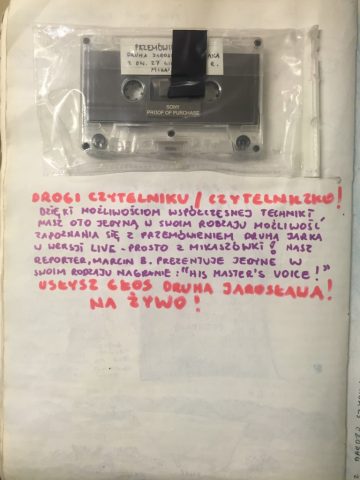 PRZEMÓWI
DRUHA JAROS
Z DN. 27
SONY
PROOF OF PURCHASE
DROGI CZYTELNIKU / CZYTELNICZKO!
DZIĘKI MOŻLIWOŚCIOM WSPÓŁCZESNEJ TECHNIKI
MASZ OTO JEDYNĄ W SWOIM RODZAJU MOŻLIWOŚĆ
ZAPOZNANIA SIĘ Z PRZEMÓWIENIEM DRUHA JARKA
W WERSJI LIVE - PROSTO Z MIKASZÓWKI! NASZ
REPORTER, MARCIN B. PREZENTUJE JEDYNE W
SWOIM RODZAJU NAGRANIE: "HIS MASTER'S VOICE!"
USŁYSZ GŁOS DRUHA JAROSŁAWA!
NA ŻYWO!